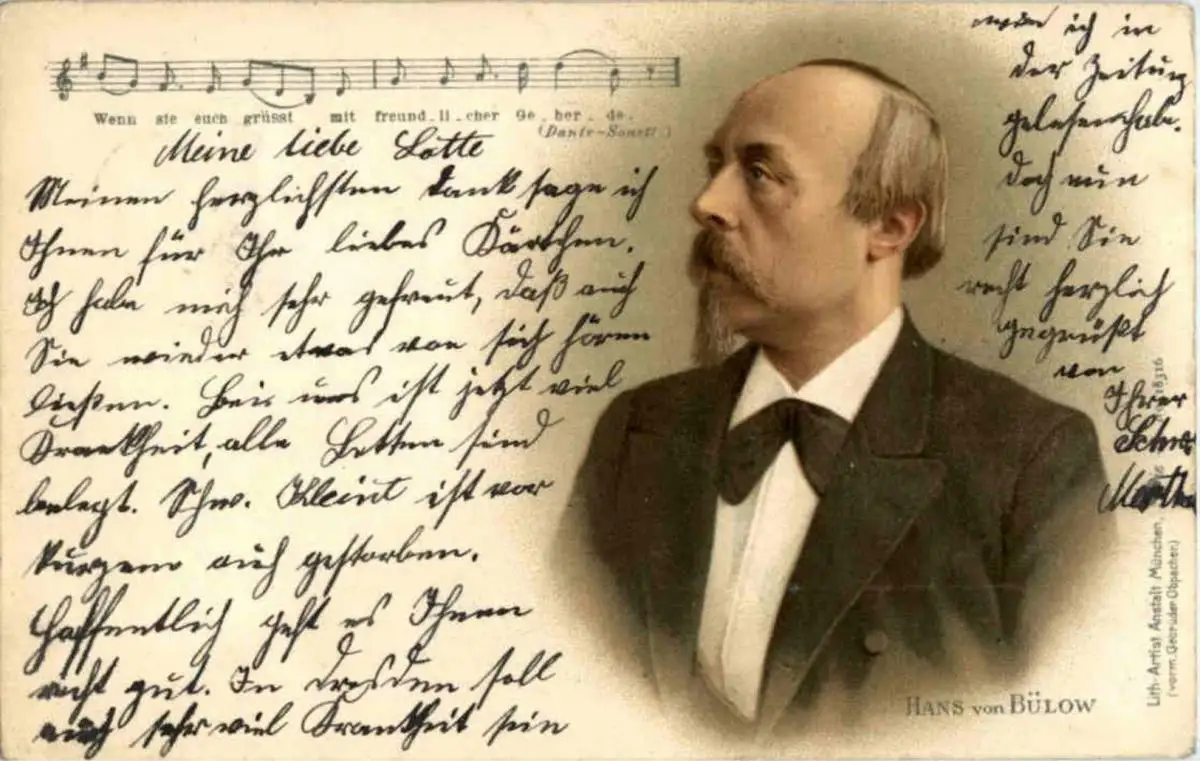 Wenn sie euch grüsst mit freund_li_cher Ge_ber_de.
(Dante-Sonett.)
Meine liebe Lotte
Meinen herzlichsten Dank sage ich
Ihnen für Ihr liebes Kärtchen.
Ich habe mich sehr gefreut, daß auch
Sie wieder etwas von sich hören
ließen. Bei uns ist jetzt viel
Krankheit, alle Betten sind
belegt. Schw. Kleint ist vor
kurzem auch gestorben.
Hoffentlich geht es Ihnen
recht gut. In Dresden soll
auch sehr viel Krankheit sein
wie ich in
der Zeitung
gelesen habe.
Doch nun
sind Sie
recht herzlich
gegrüßt
von
Ihrer
Schw.
Martha
HANS von BÜLOW
Lith-Artist Anstalt München, 18316
(vorm. Gebrüder Obpacher.)